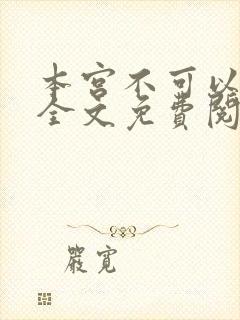 本宫不可以
全文免費閱
嚴寬